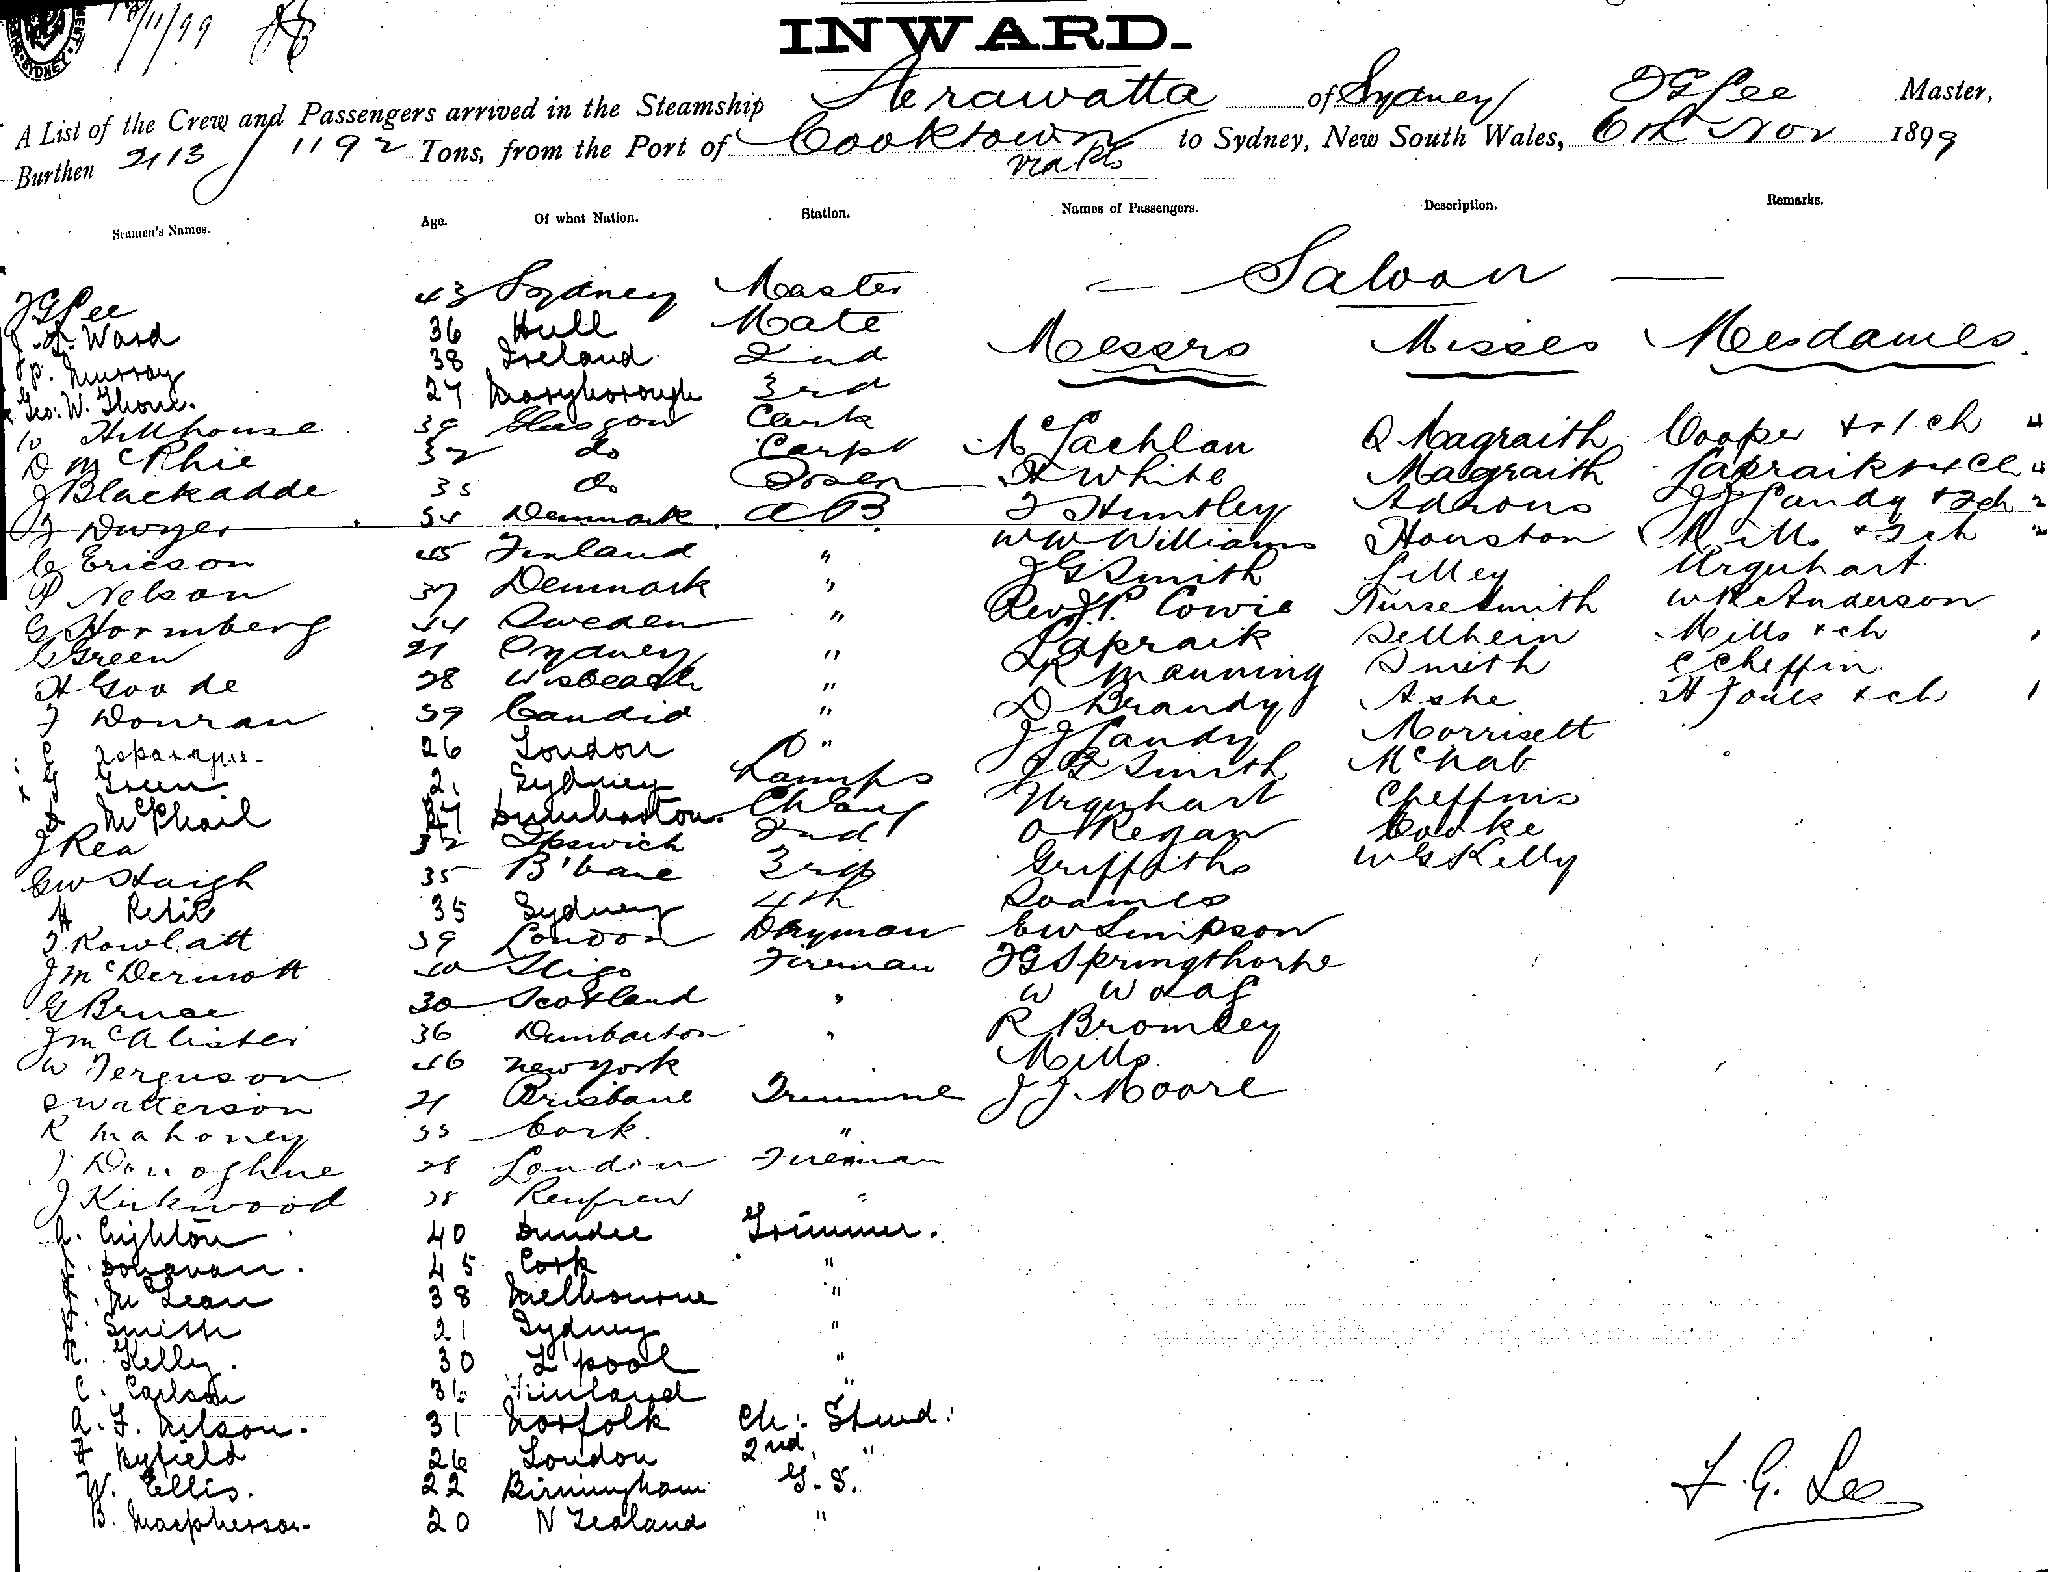 SYDNEY
INWARD.
A List of the Crew and Passengers arrived in the Steamship Arawatta of Sydney F G Lee Master,
Burthen 2113 / 1192 Tons, from the Port of Cooktown to Sydney, New South Wales, 6th Nov 1899
via Pts
Seamen's Names. Age. Of what Nation. Station. Names of Passengers. Description. Remarks.
— Saloon —
F G Lee 43 Sydney Master
Ward 36 Hull Mate Messrs Misses Mesdames.
P. Murray 38 Ireland 2nd
Geo. W. Thorne. 27 Maryborough 3rd
W Hillhouse 39 Glasgow Clerk McLachlan Magraith Cooper + 1 ch
D McPhie 32 do Carpt H White Magraith Lapraik
J Blackadde 35 do Bosen F Huntley Adrons J J Landy + 2 ch 2
Dwyer 34 Denmark AB W W Williams Houston Mills + 2 ch
C Ericson 45 Finland " J G Smith Lilley Urquhart
P Nelson 37 Denmark " Rev J. P. Cowie Nurse Smith Anderson
G Hormberg 44 Sweden " Lapraik Sellhein Mills + ch
G Green 21 Sydney " R Manning Smith C Cheffin
H Goode 28 Wisbeach " D Brandy Ashe H Jones + ch 1
Donran 39 Candid " J J Landy Morrisett
26 London " J G Smith McNab
Green 21 Sydney Lamps Urquhart Cheffins
McPhail 47 Dumbarton Ch Eng O'Regan Cooke
J Rea 32 Ipswich 2nd Griffiths W G Kelly
G W Haigh 35 B'bane 3rd Soames
H Petit 35 Sydney 4th E W Simpson
Rowlatt 39 London Dkyman F G Springthorpe
J McDermott 40 Sligo Fireman W
G Bruce 30 Scotland " R Bromley
J McAlister 36 Dumbarton " Mills
W Ferguson 46 New York J J Moore
Watterson 21 Brisbane Trimme
R Mahoney 33 Cork. "
Donoghue 28 London Fireman
J Kirkwood 28 Renfrew "
Crighton 40 Dundee Trimmer.
Donavan. 45 Cork "
McLean 38 Melbourne "
Smith 21 Sydney "
Kelly. 30 L'pool "
C. Carlson 36 Finland "
A. F. Nilson. 31 Norfolk Ch: Stwd:
Byfield 26 London 2nd "
W. Ellis. 22 Birmingham G. S.
B. Macpherson. 20 N Zealand "
F. G. Lee